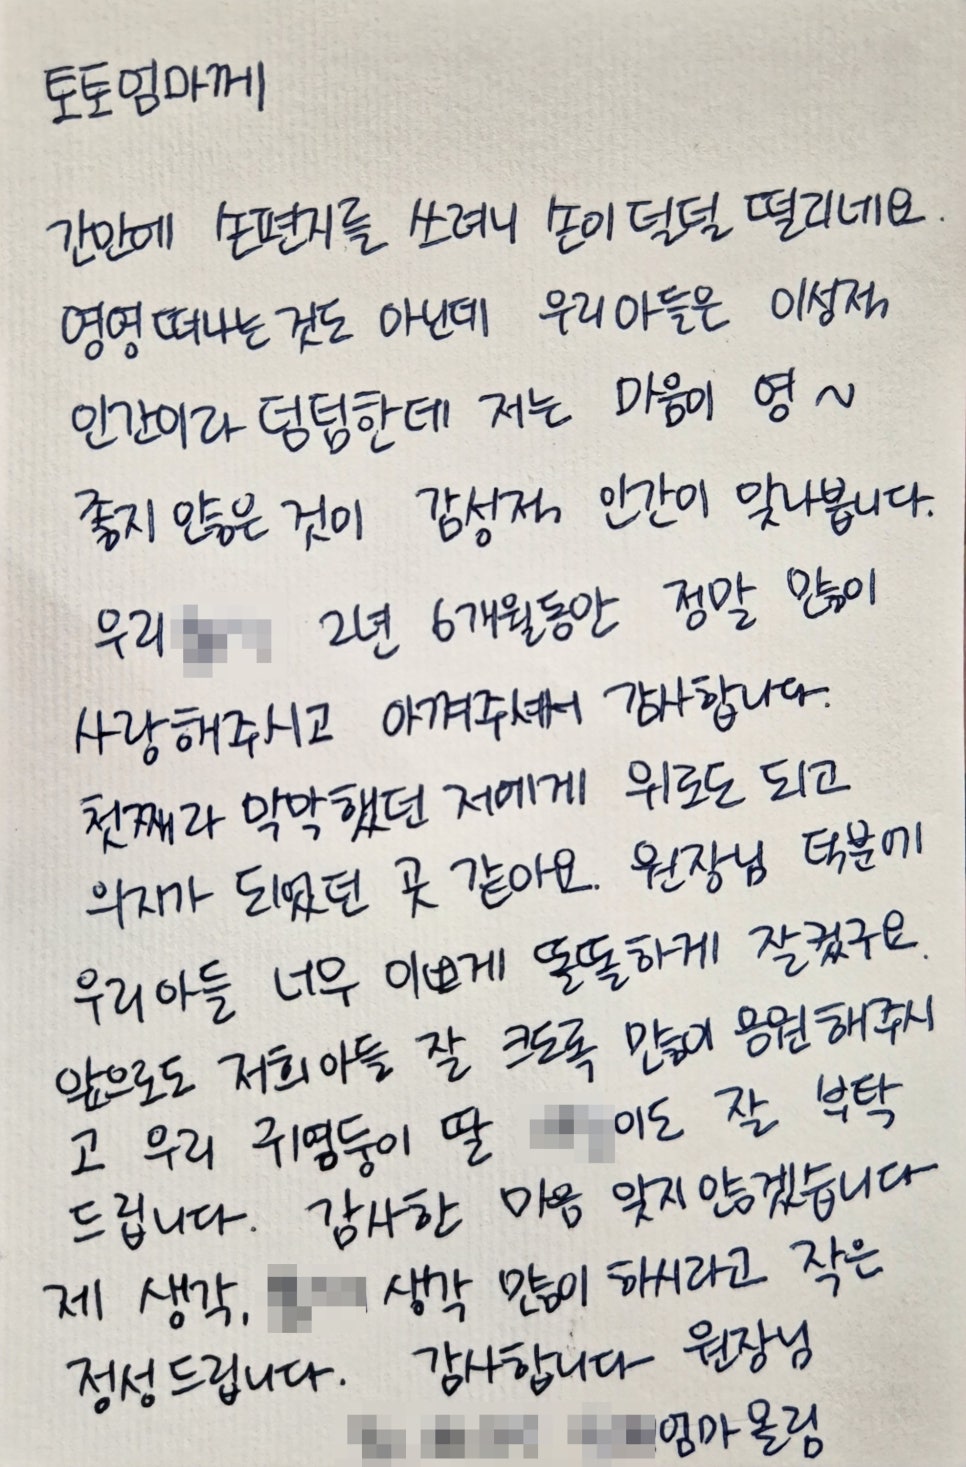 토토엄마께
간만에 손편지를 쓰려니 손이 덜덜 떨리네요.
영영 떠나는것도 아닌데 우리아들은 이성적
인간이라 덤덤한데 저는 마음이 영~
좋지 않은 것이 감성적 인간이 맞나봅니다.
우리 2년 6개월동안 정말 많이
사랑해주시고 아껴주셔서 감사합니다.
첫째라 막막했던 저에게 위로도 되고
의지가 되었던 곳 같아요. 원장님 덕분에
우리아들 너무 이쁘게 똘똘하게 잘컸구요.
앞으로도 저희아들 잘 크도록 많이 응원해주시
고 우리 귀염둥이 딸 이도 잘 부탁
드립니다. 감사한 마음 잊지않겠습니다
제 생각, 생각 많이 하시라고 작은
정성드립니다. 감사합니다 원장님
엄마올림